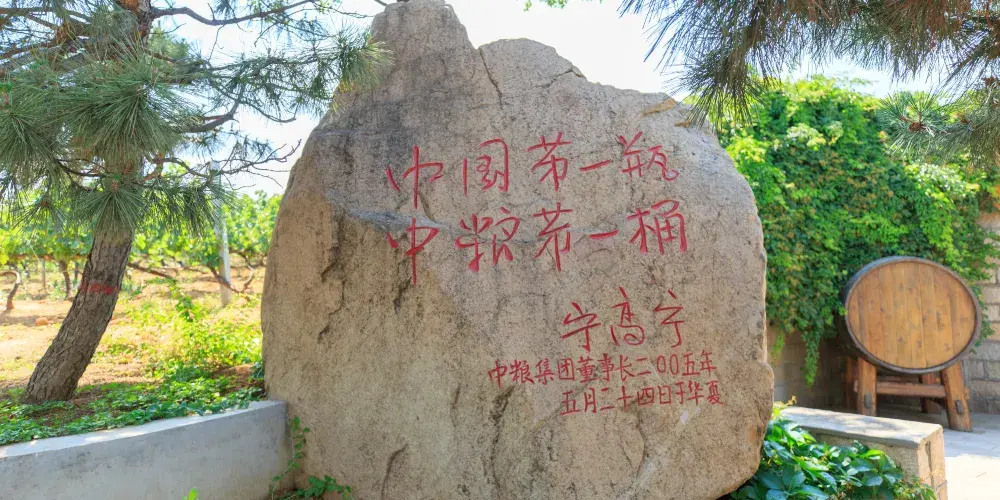 中国第一瓶
中粮第一桶
宁高宁
中粮集团董事长二00五年
五月二十四日于华夏